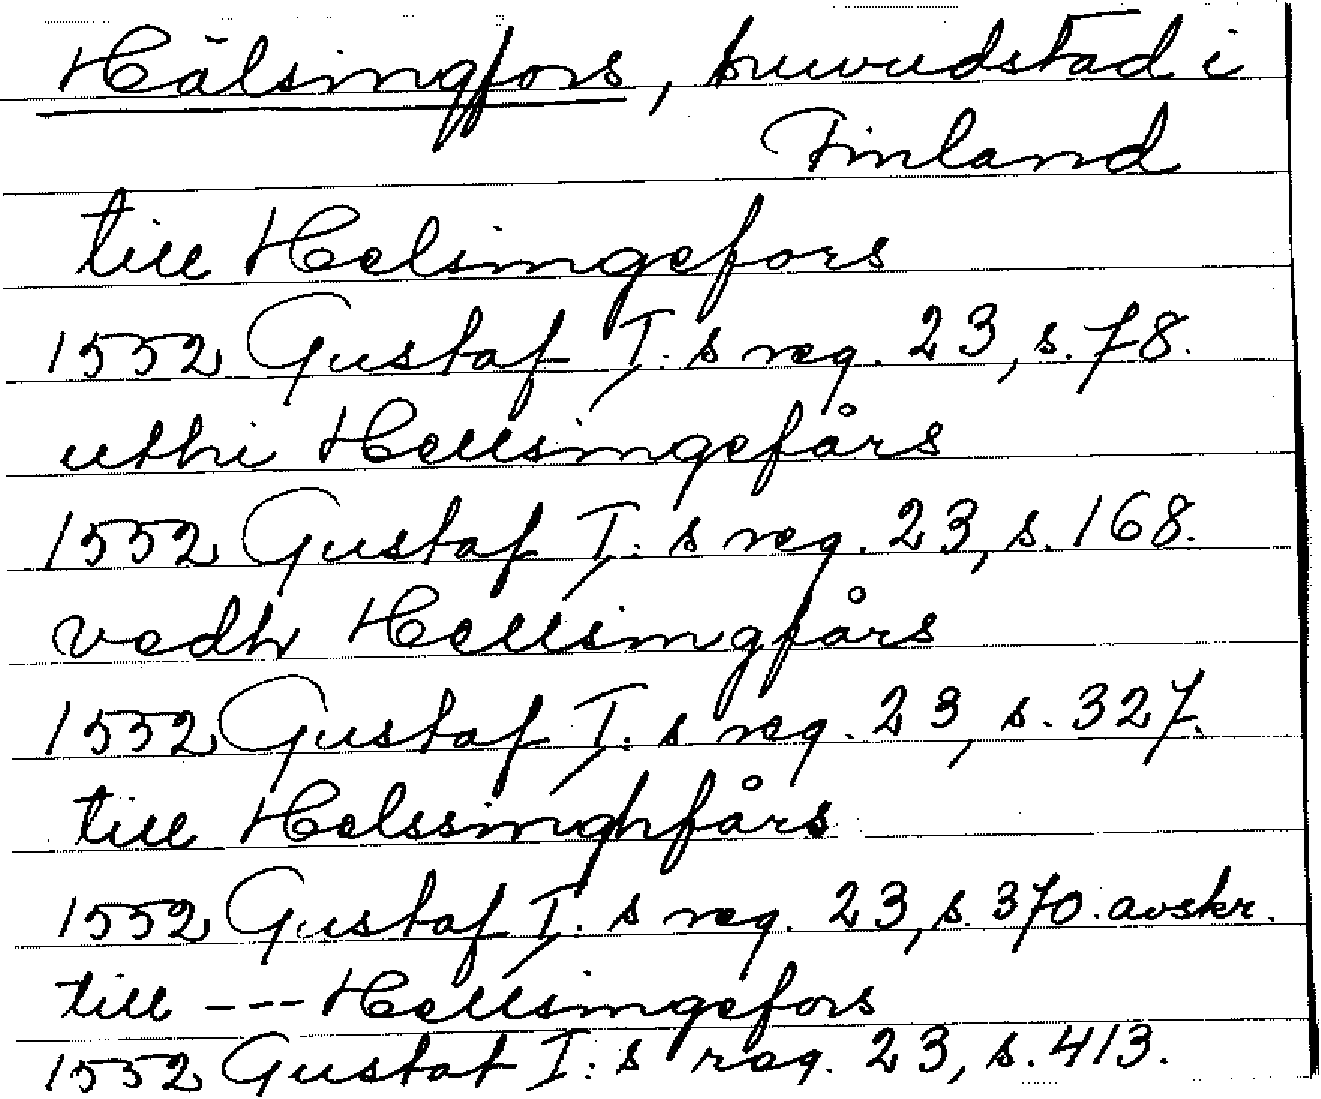 Hälsingfors, huvudstad i
Finland
till Helsingefors
1552 Gustaf I:s reg. 23, s. 78.
uthi Hellsingefårs
1552 Gustaf I:s reg. 23, s. 168.
vedh Hellsingfårs
1552 Gustaf I:s reg. 23, s. 327.
till Helssinghfårs
1552 Gustaf I:s reg. 23, s. 370. avskr.
till --- Hellsingefors
1552 Gustaf I:s reg. 23, s. 413.